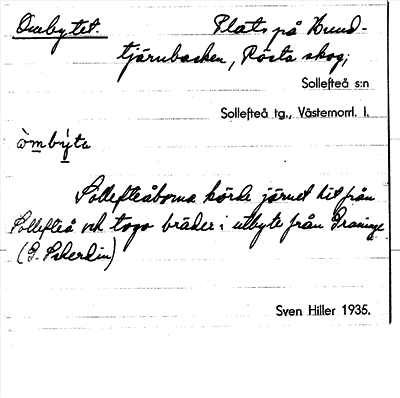 Ombytet. Plats på Hund-
tjärnbacken, Rösta skog,
Sollefteå s:n
Sollefteå tg., Västernorrl. l.
òmbýta
Sollefteåborna körde järnet hit från
Sollefteå och togo bräder i utbyte från Graninge
(G. Scherdin)
Sven Hiller 1935.